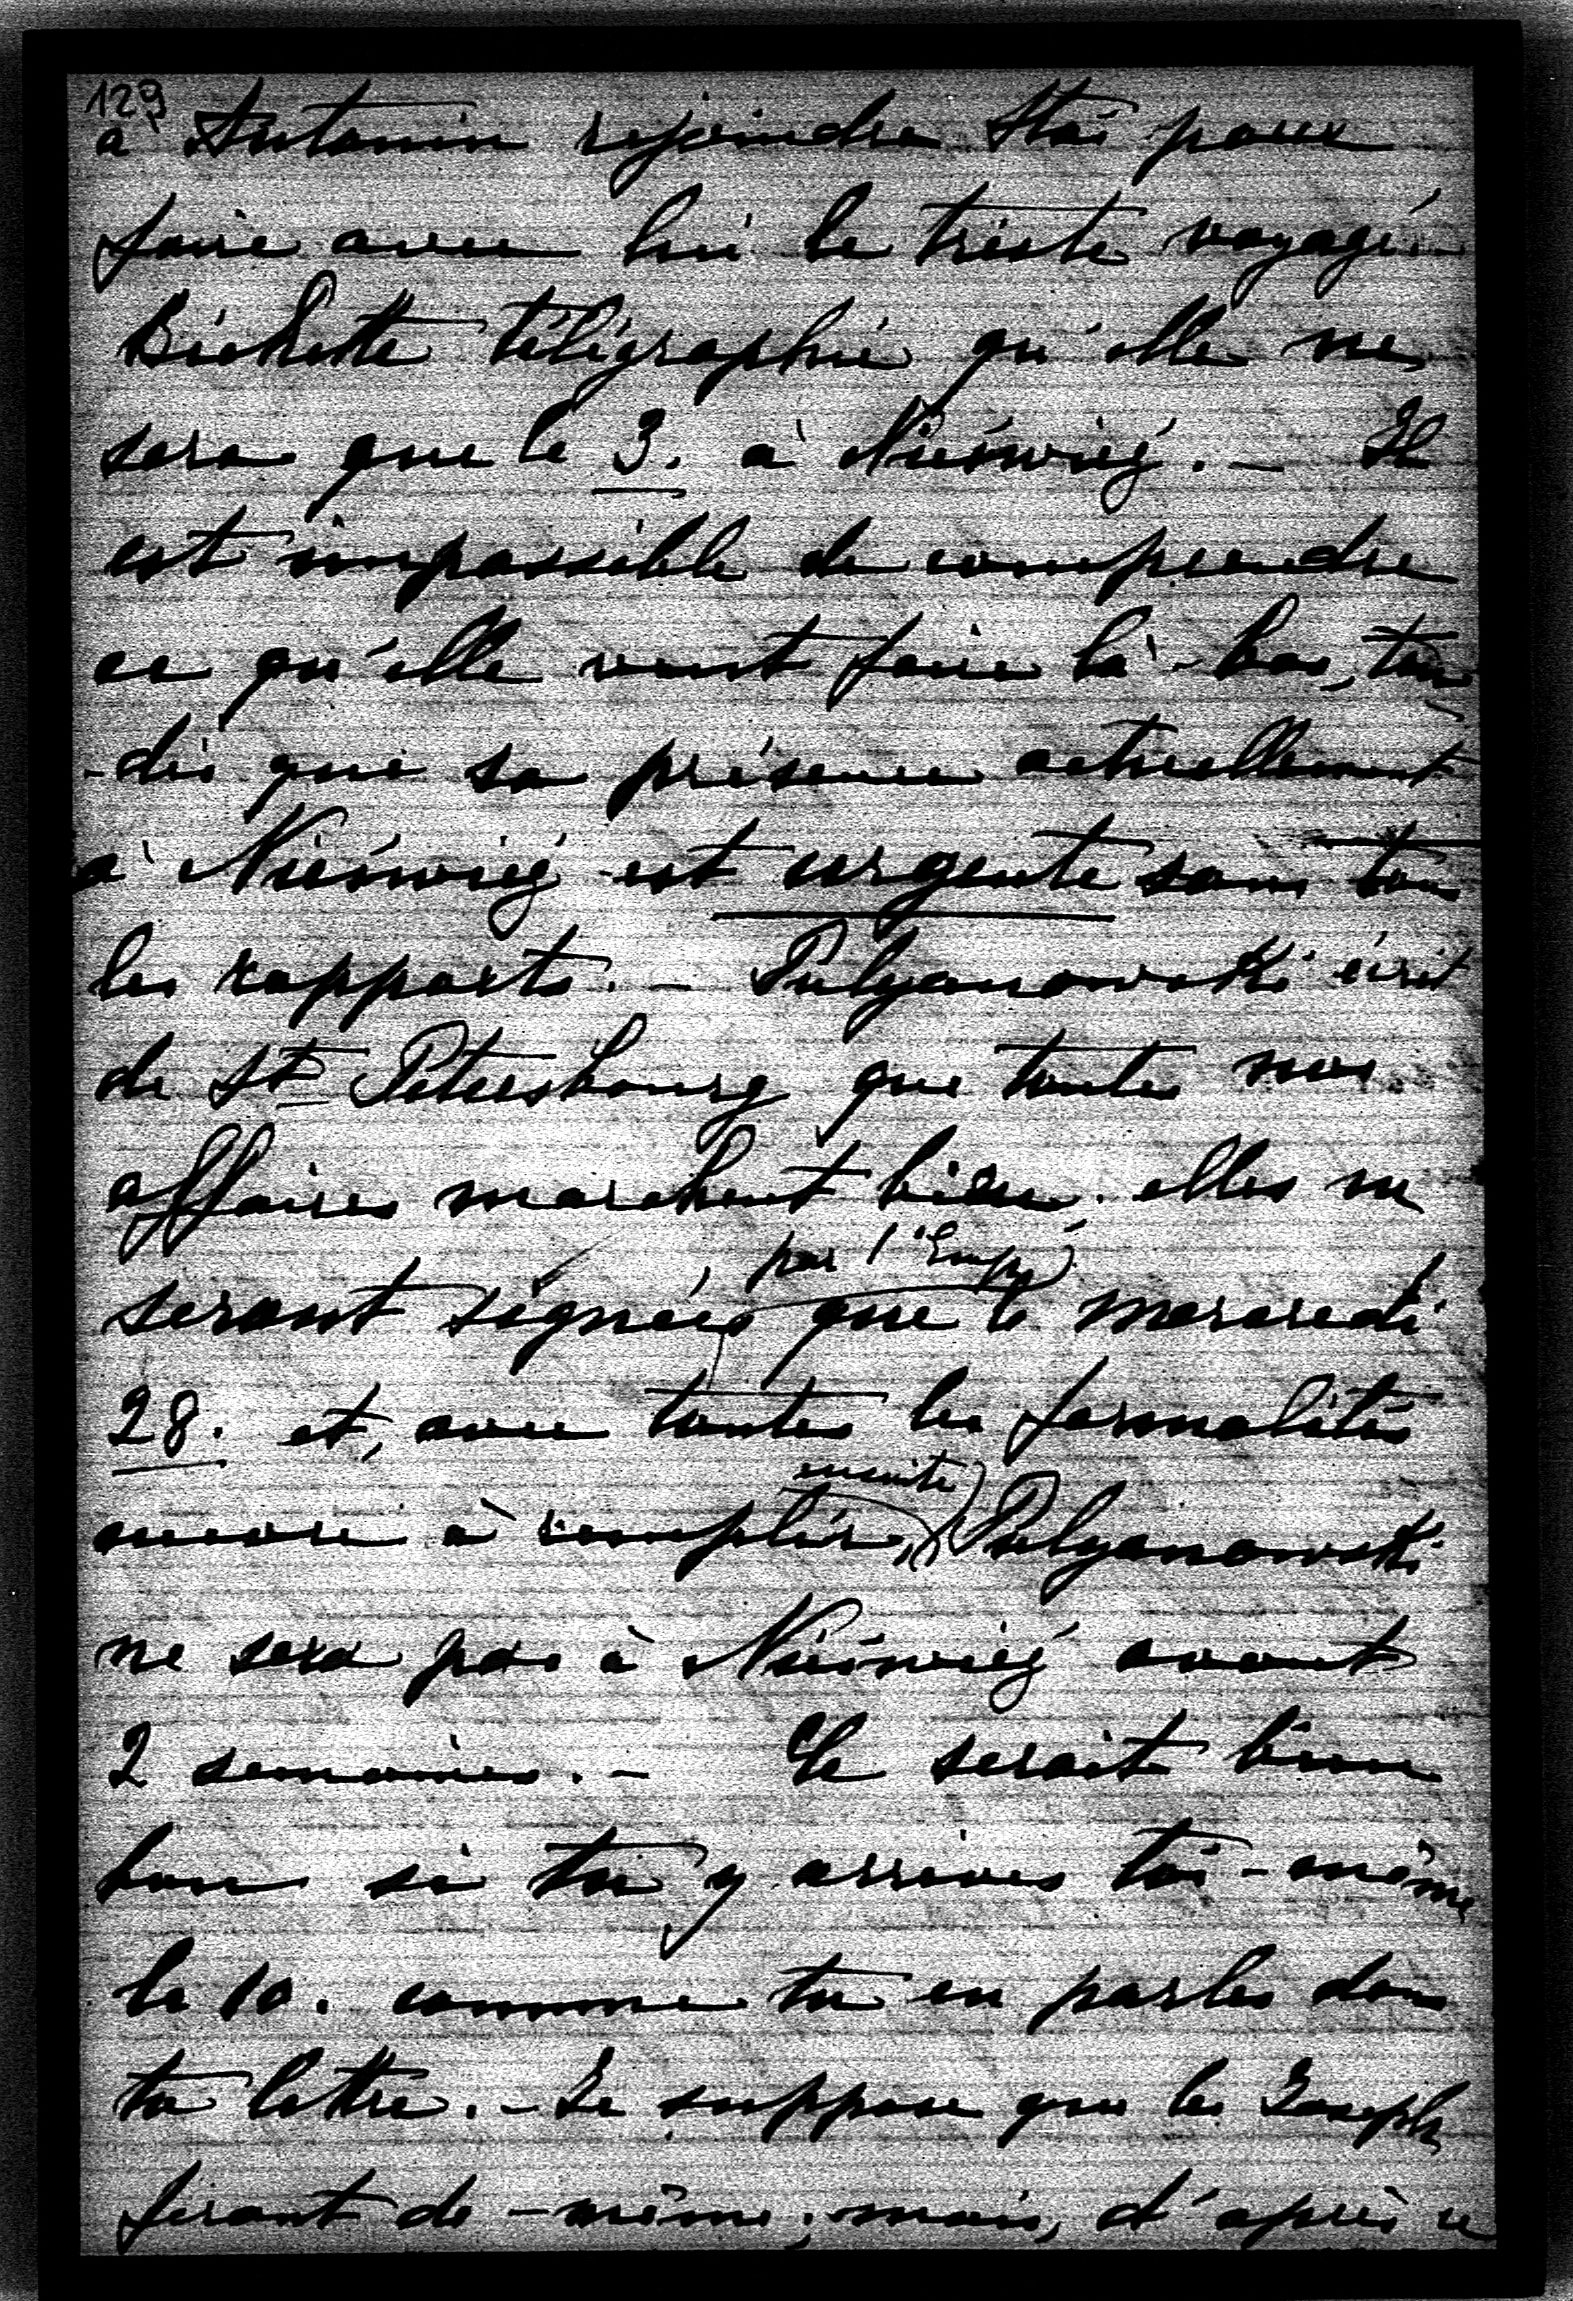 129
à Antonin rejoindre Staś pour
faire avec lui le triste voyage. –
Bichette télégraphie qu'elle ne
sera que le 3. à Nieśwież. – Il
est impossible de comprendre
ce qu'elle veut faire là-bas, tan
-dis que sa présence actuellement
à Nieśwież est urgente sous tous
les rapports. – Pulyanowski écrit
de St Pétersbourg que toutes nos
affaires marchent bien. elles ne
par l'Emp:
seront signées que le mercredi
28. et, avec toutes les formalités
ensuite
encore à remplir, Pulyanowski
ne sera pas à Nieśwież avant
2 semaines. – Ce serait bien
bon si tu y arrives toi-même
le 10. comme tu en parles dans
ta lettre. – Je suppose que les Joseph
feront de-même; mais, d'après ce